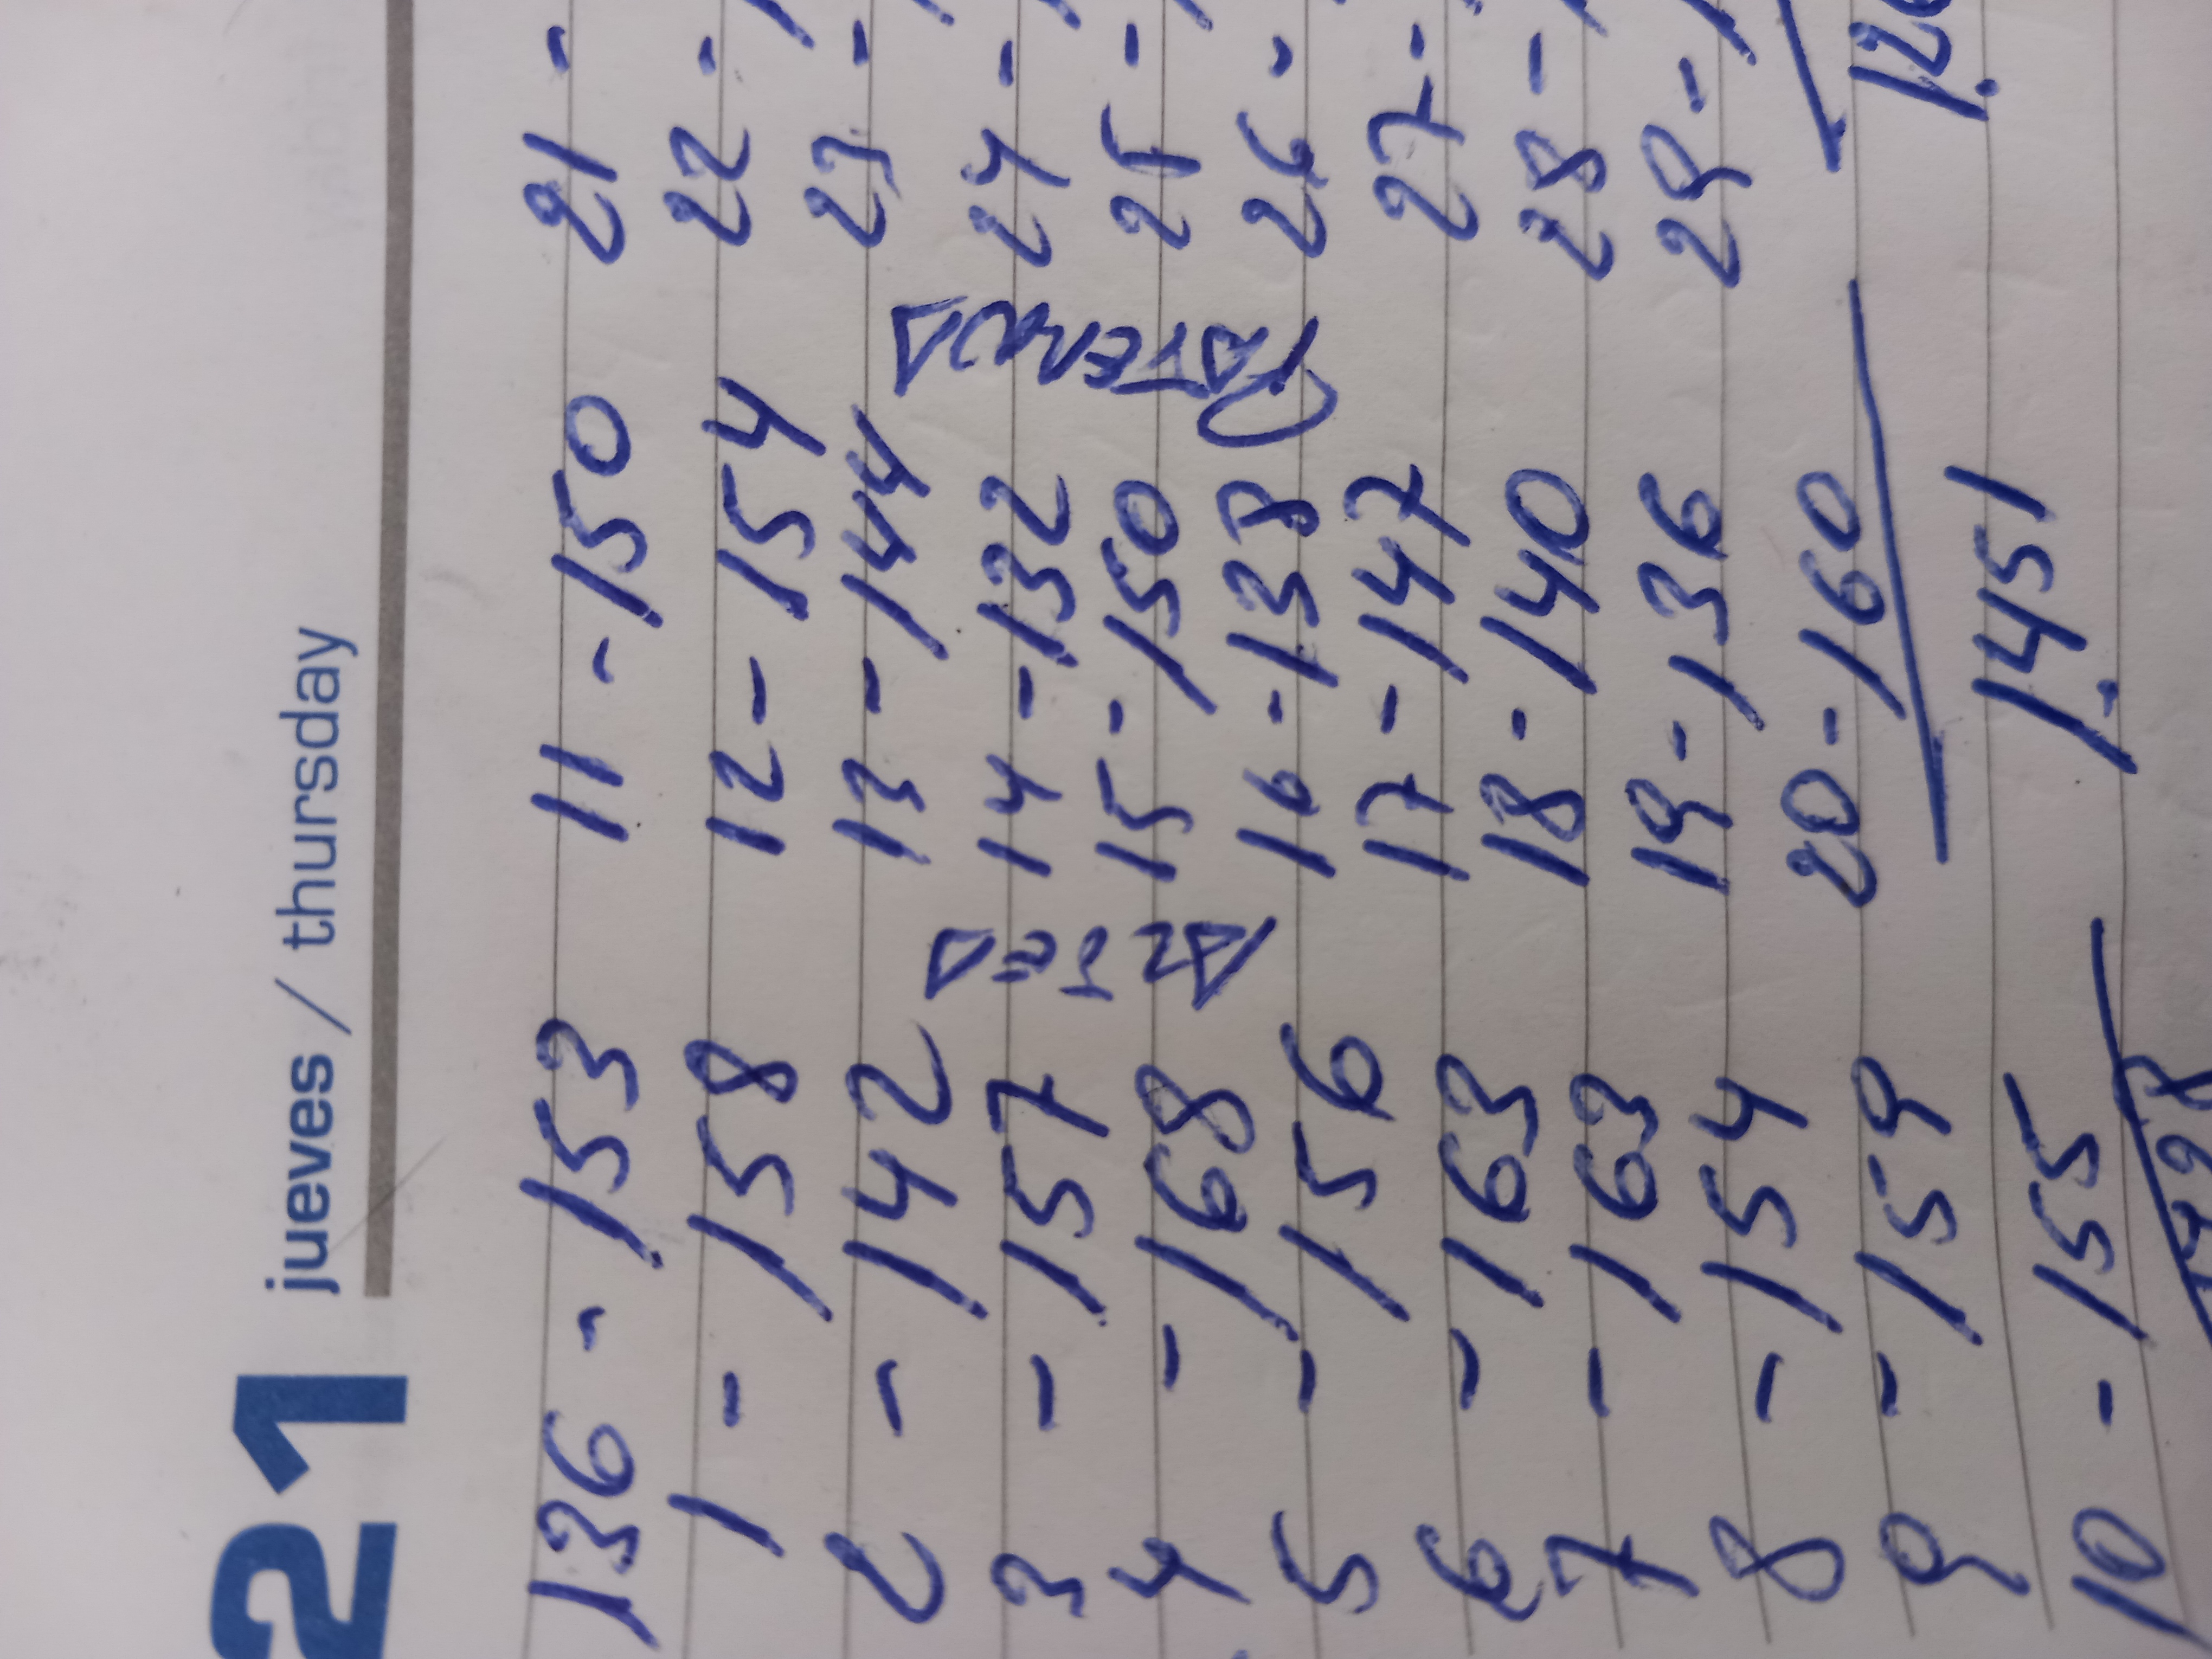 21 jueves / thursday
136 - 153
1 - 158
2 - 142
3 - 157
4 - 168
5 - 156
6 - 163
7 - 163
8 - 154
9 - 159
10 - 155
11 - 150
12 - 154
13 - 144
14 - 132
15 - 150
16 - 138
17 - 147
18 - 140
19 - 136
20 - 160
1.451
21 -
22 -
23 -
24 -
25 -
26 -
27 -
28 -
29 -